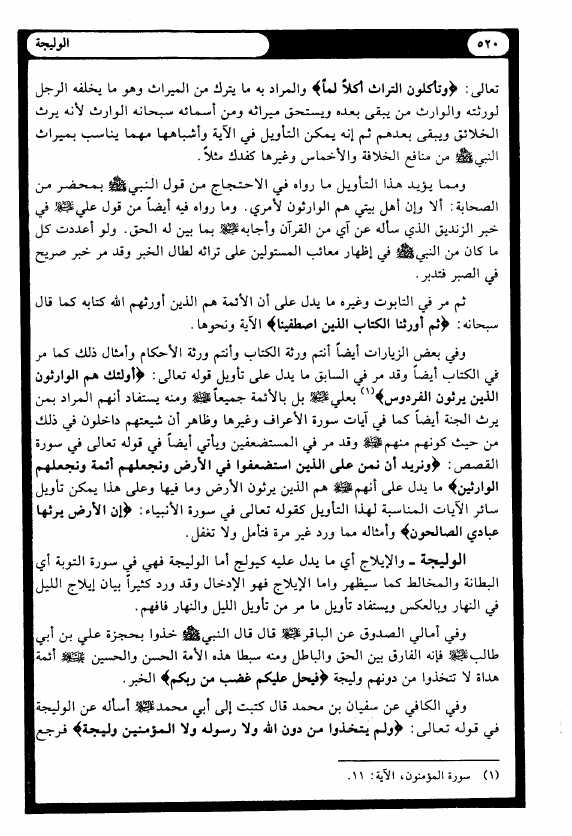 ٥٢٠
الوليجة
تعالى: ﴿وتأكلون التراث أكلاً لماً﴾ والمراد به ما يترك من الميراث وهو ما يخلفه الرجل
لورثته والوارث من يبقى بعده ويستحق ميراثه ومن أسمائه سبحانه الوارث لأنه يرث
الخلائق ويبقى بعدهم ثم إنه يمكن التأويل في الآية وأشباهها مهما يناسب بميراث
النبي ﷺ من منافع الخلافة والأخماس وغيرها كفدك مثلاً.
ومما يؤيد هذا التأويل ما رواه في الاحتجاج من قول النبي ﷺ بمحضر من
الصحابة: ألا وإن أهل بيتي هم الوارثون لأمري. وما رواه فيه أيضاً من قول علي عليه السلام في
خبر الزنديق الذي سأله عن آي من القرآن وأجابه عليه السلام بما بين له الحق. ولو أعددت كل
ما كان من النبي ﷺ في إظهار معائب المستولين على تراثه لطال الخبر وقد مر خبر صريح
في الصبر فتدبر.
ثم مر في التابوت وغيره ما يدل على أن الأئمة هم الذين أورثهم الله كتابه كما قال
سبحانه: ﴿ثم أورثنا الكتاب الذين اصطفينا﴾ الآية ونحوها.
وفي بعض الزيارات أيضاً أنتم ورثة الكتاب وأنتم ورثة الأحكام وأمثال ذلك كما مر
في الكتاب أيضاً وقد مر في السابق ما يدل على تأويل قوله تعالى: ﴿أولئك هم الوارثون
الذين يرثون الفردوس﴾(١) بعلي عليه السلام بل بالأئمة جميعاً عليهم السلام ومنه يستفاد أنهم المراد بمن
يرث الجنة أيضاً كما في آيات سورة الأعراف وغيرها وظاهر أن شيعتهم داخلون في ذلك
من حيث كونهم منهم عليهم السلام وقد مر في المستضعفين ويأتي أيضاً في قوله تعالى في سورة
القصص: ﴿ونريد أن نمن على الذين استضعفوا في الأرض ونجعلهم أئمة ونجعلهم
الوارثين﴾ ما يدل على أنهم عليهم السلام هم الذين يرثون الأرض وما فيها وعلى هذا يمكن تأويل
سائر الآيات المناسبة لهذا التأويل كقوله تعالى في سورة الأنبياء: ﴿إن الأرض يرثها
عبادي الصالحون﴾ وأمثاله مما ورد غير مرة فتأمل ولا تغفل.
الوليجة ـ والإيلاج أي ما يدل عليه كيولج أما الوليجة فهي في سورة التوبة أي
البطانة والمخالط كما سيظهر واما الإيلاج فهو الإدخال وقد ورد كثيراً بيان إيلاج الليل
في النهار وبالعكس ويستفاد تأويل ما مر من تأويل الليل والنهار فافهم.
وفي أمالي الصدوق عن الباقر عليه السلام قال قال النبي ﷺ خذوا بحجزة علي بن أبي
طالب عليه السلام فإنه الفارق بين الحق والباطل ومنه سبطا هذه الأمة الحسن والحسين عليهما السلام أئمة
هداة لا تتخذوا من دونهم وليجة ﴿فيحل عليكم غضب من ربكم﴾ الخبر.
وفي الكافي عن سفيان بن محمد قال كتبت إلى أبي محمد عليه السلام أسأله عن الوليجة
في قوله تعالى: ﴿ولم يتخذوا من دون الله ولا رسوله ولا المؤمنين وليجة﴾ فرجع
(١) سورة المؤمنون، الآية: ١١.